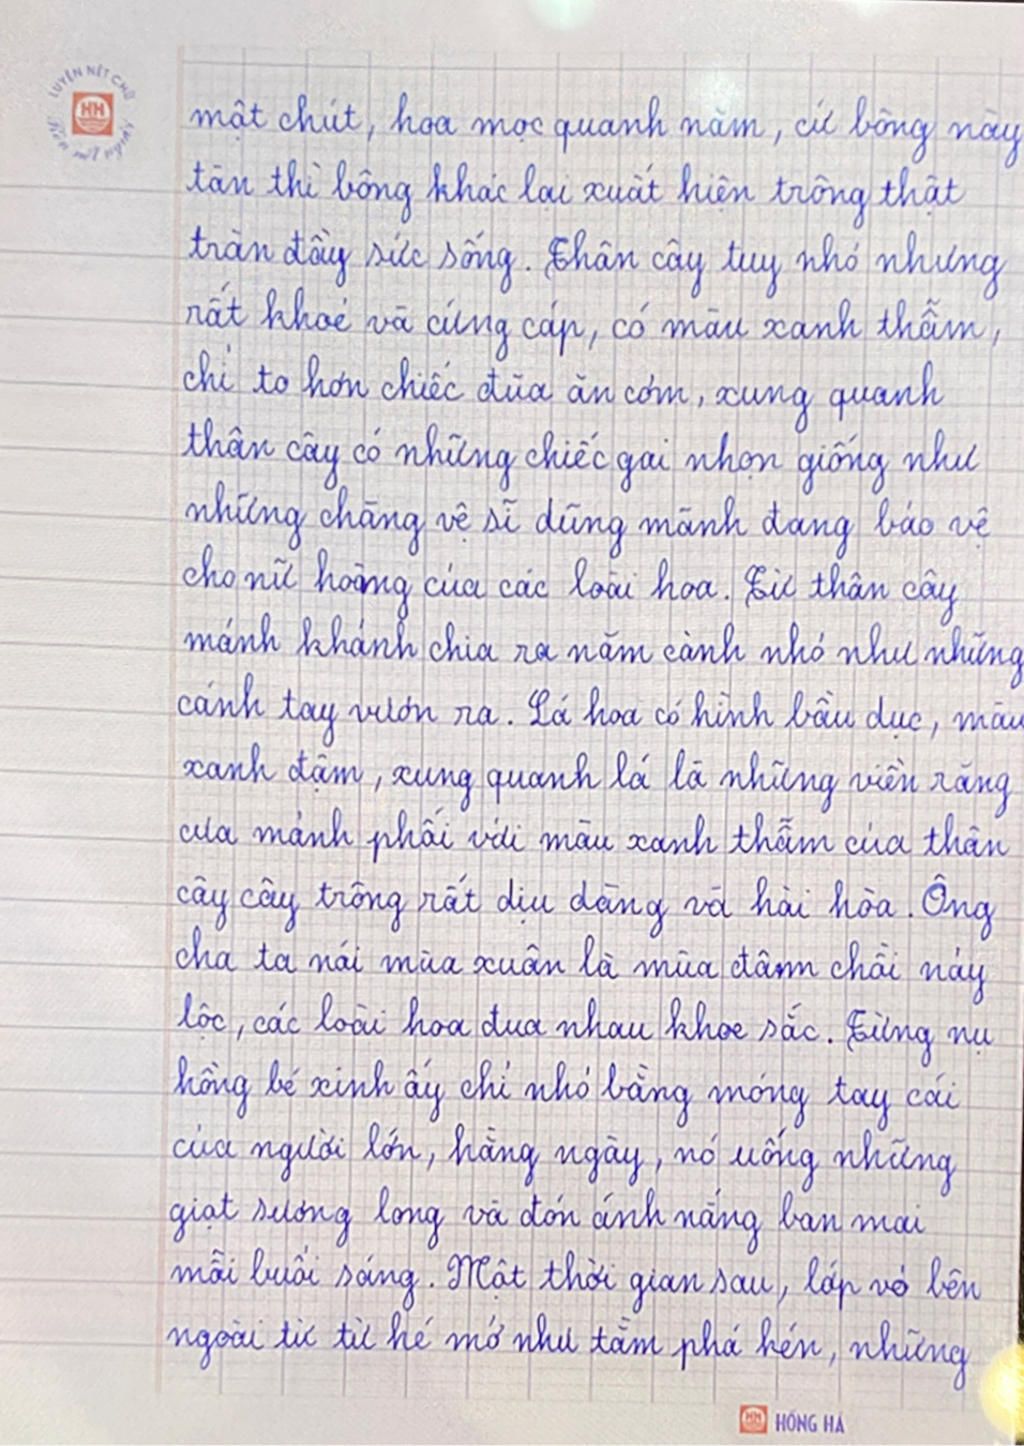 LUYỆN NÉT CHỮ
HH
một chút, hoa mọc quanh năm, cứ bông này
tàn thì bông khác lại xuất hiện trông thật
tràn đầy sức sống. Thân cây tuy nhỏ nhưng
rất khoẻ và cứng cáp, có màu xanh thẫm,
chỉ to hơn chiếc đũa ăn cơm, xung quanh
thân cây có những chiếc gai nhọn giống như
những chàng vệ sĩ dũng mãnh đang bảo vệ
cho nữ hoàng của các loài hoa. Từ thân cây
mảnh khảnh chia ra năm cành nhỏ như những
cánh tay vươn ra. Lá hoa có hình bầu dục, màu
xanh đậm, xung quanh lá là những viền răng
cưa mảnh phối với màu xanh thẫm của thân
cây cây trông rất dịu dàng và hài hòa. Ông
cha ta nói mùa xuân là mùa đâm chồi nảy
lộc, các loài hoa đua nhau khoe sắc. Từng nụ
hồng bé xinh ấy chỉ nhỏ bằng móng tay cái
của người lớn, hằng ngày, nó uống những
giọt sương long và đón ánh nắng ban mai
mỗi buổi sáng. Một thời gian sau, lớp vỏ bên
ngoài từ từ hé mở như tằm phá kén, những
HH HỒNG HÀ